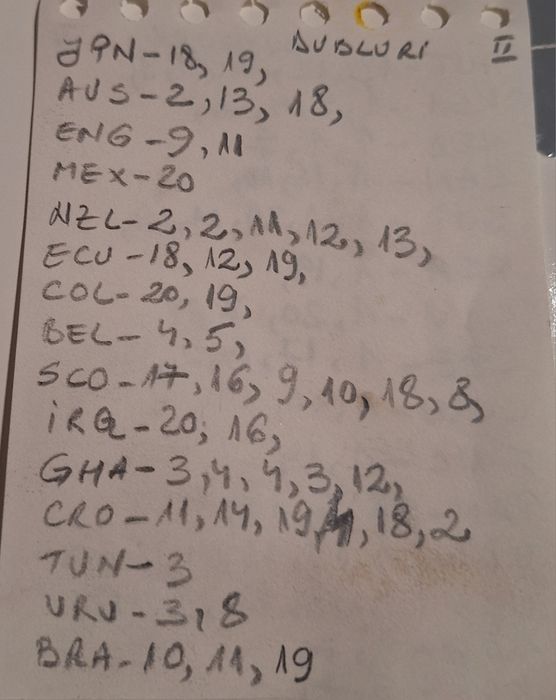 JPN-18, 19, DUBLURI II
AUS-2, 13, 18,
ENG-9, 11
MEX-20
NZL-2, 2, 11, 12, 13,
ECU-18, 12, 19,
COL-20, 19,
BEL-4, 5,
SCO-17, 16, 9, 10, 18, 8,
iRQ-20, 16,
GHA-3, 4, 4, 3, 12,
CRO-11, 14, 19, 18, 2
TUN-3
URU-3, 8
BRA-10, 11, 19